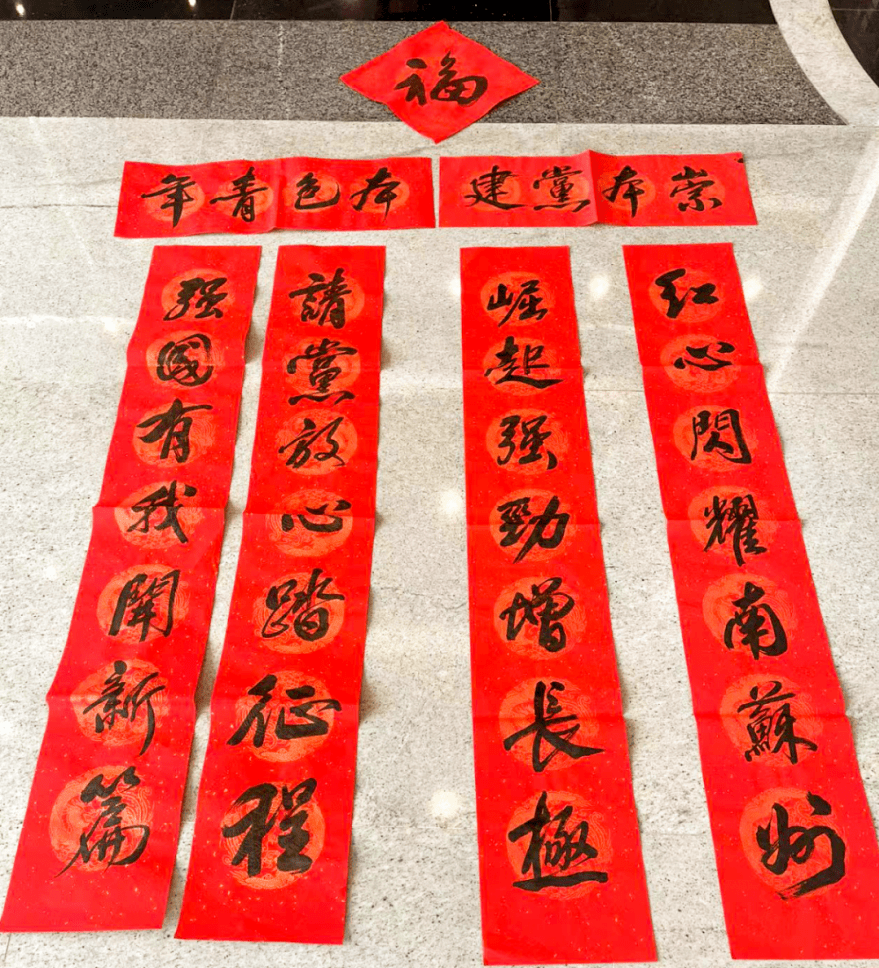 福
崇本黨建
本色青年
红心閃耀南蘇州
崛起强勁增長極
請黨放心踏征程
强國有我開新篇